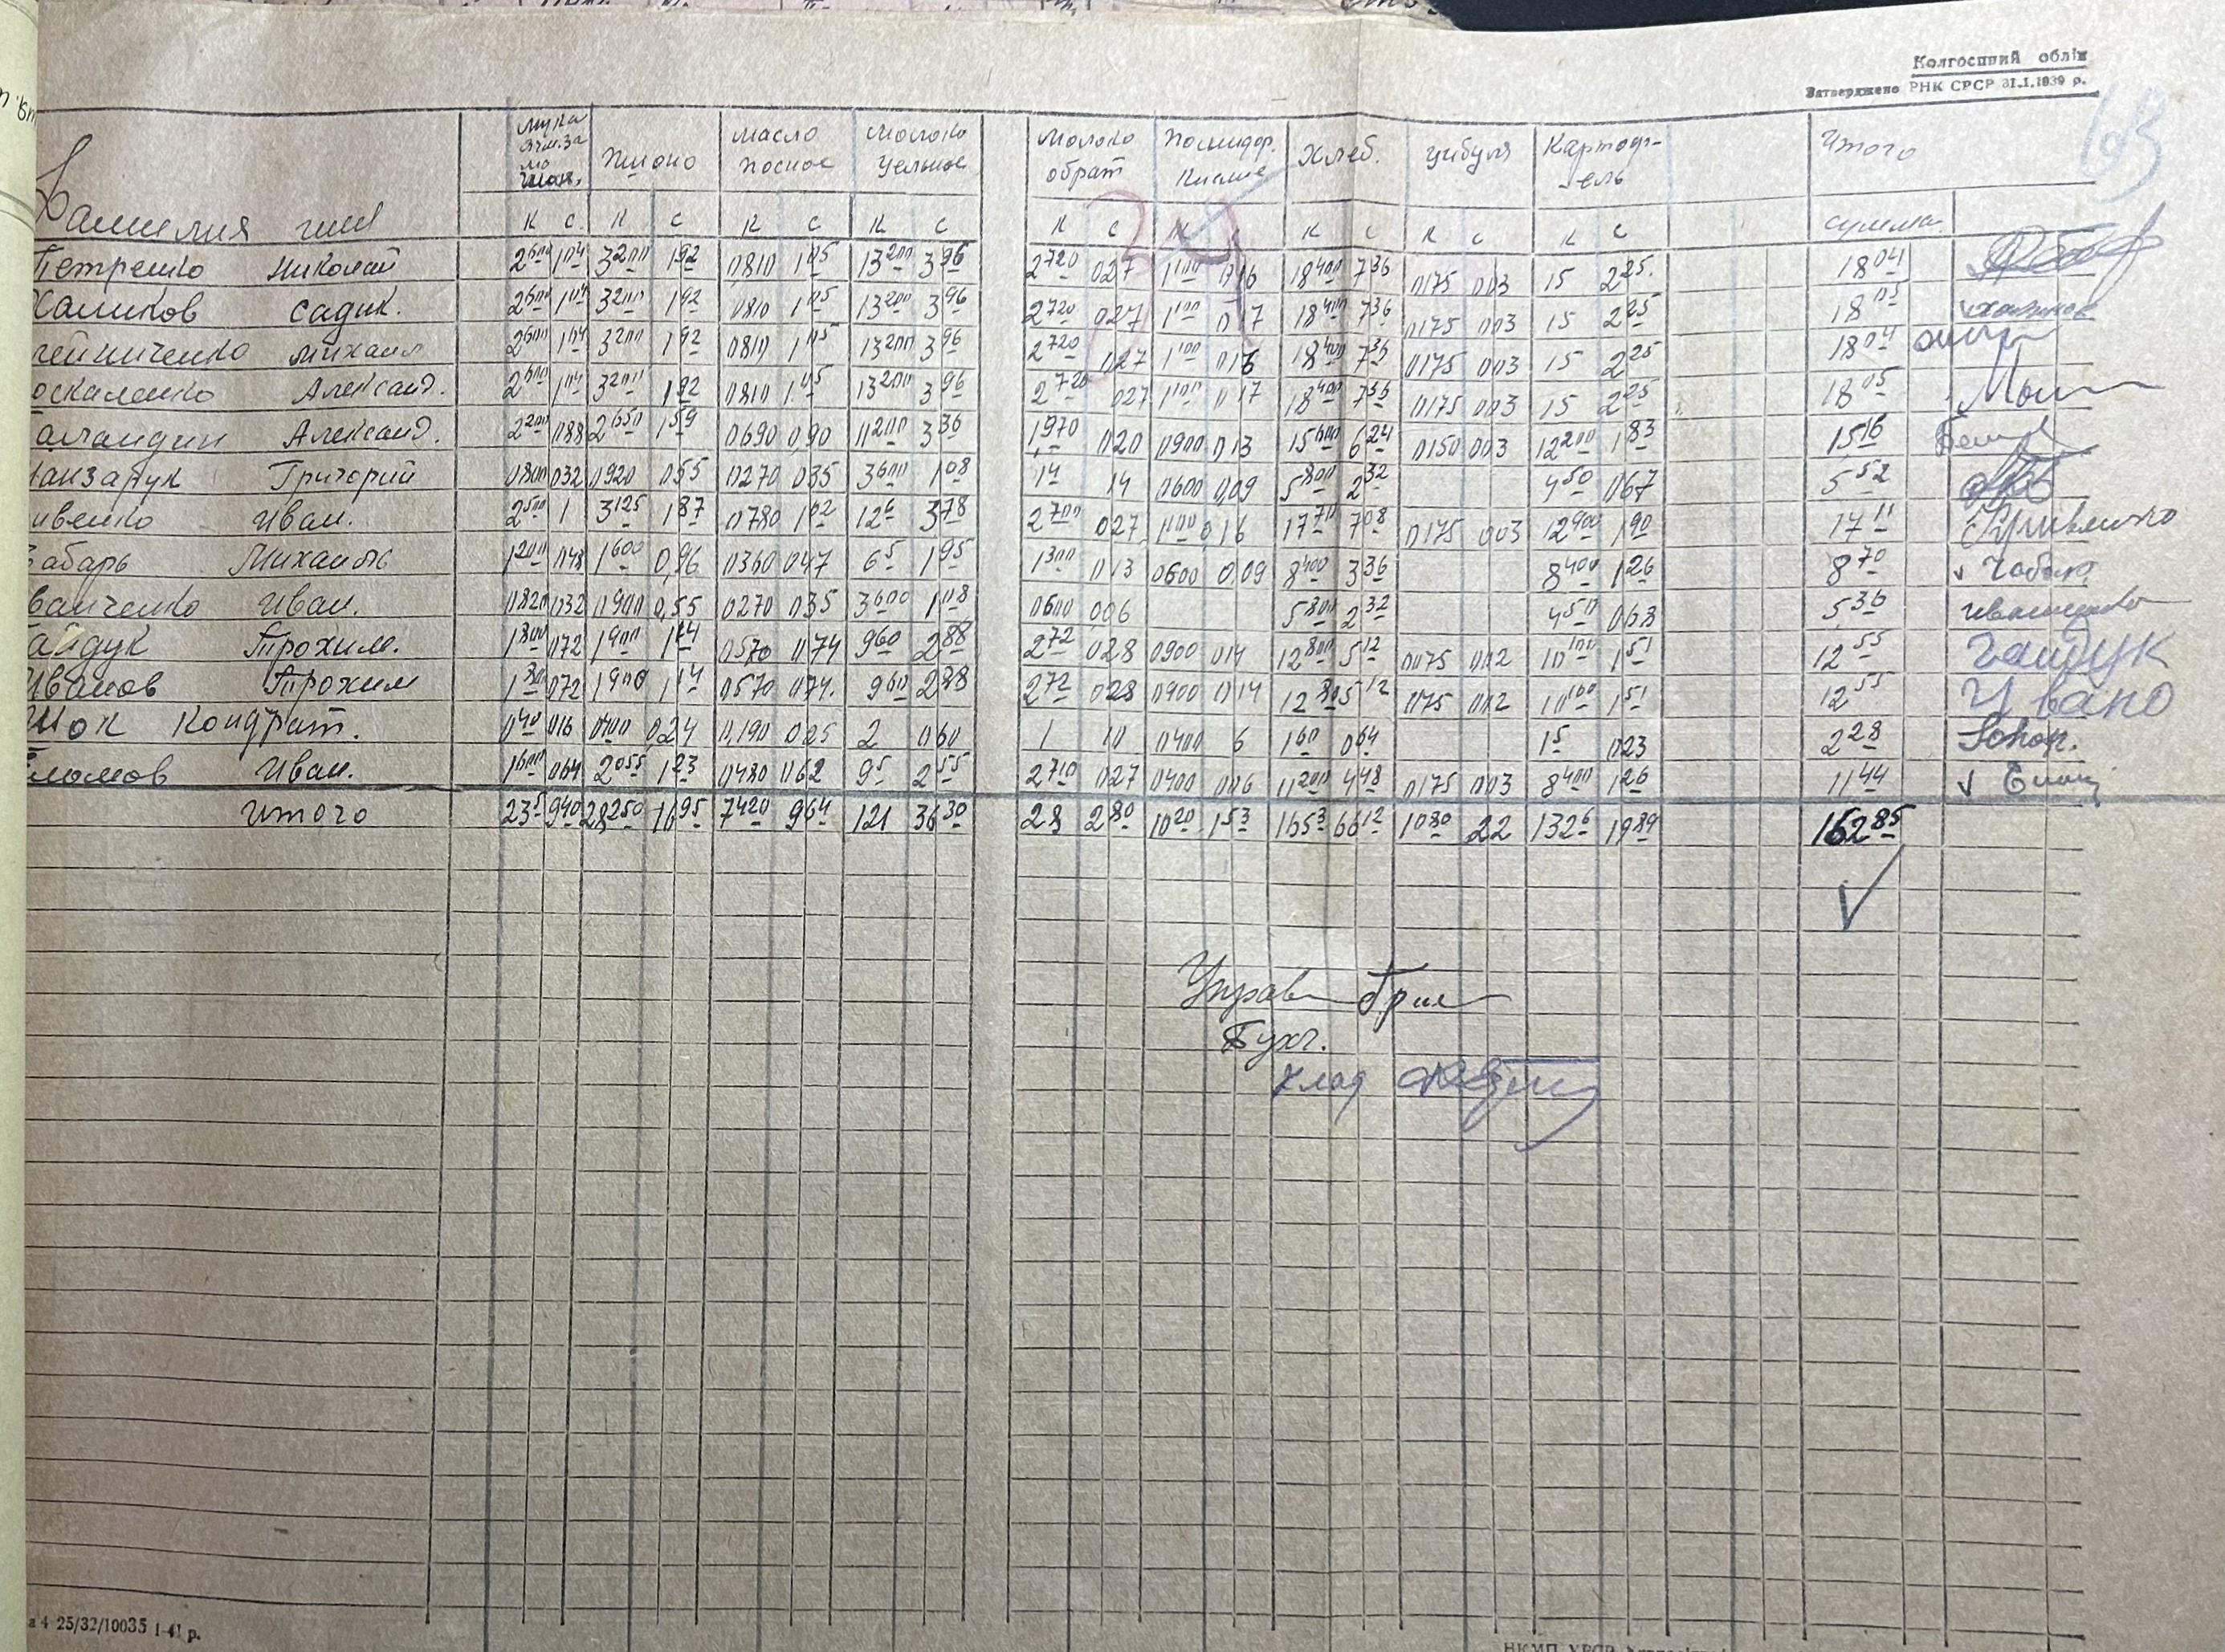 Колгоспний облік
Затверджено РНК СРСР 31.1.1939 р.
163
Фамилия имя Мука Пшоно Масло посное Молоко цельное Молоко обрат Помидор. Хлеб. Цибуля Картофель Итого
К С. К С К С К С К С К С К С К С сумма
Петренко Николай 2600 104 3200 192 0810 105 13200 396 2720 027 1100 016 18400 736 0175 003 15 225 1804
Халиков Садик. 2600 104 3200 192 0810 105 13200 396 2720 027 1100 017 18400 736 0175 003 15 225 1805
Михаил 2600 104 3200 192 0810 105 13200 396 2720 027 1100 016 18400 736 0175 003 15 225 1804
оскаленко Александ. 2600 104 3200 192 0810 105 13200 396 2720 027 1100 017 18400 736 0175 003 15 225 1805
Александ. 2200 088 2650 159 0690 0,90 11200 336 1970 020 0900 013 15600 624 0150 003 12200 183 1516
Григорий 0800 032 0920 055 0270 035 3600 108 14 14 0600 0,09 5800 232 450 067 552
ивенко Иван. 2500 1 3125 187 0780 102 126 378 2700 027 1100 0,16 17700 708 0175 003 12900 190 1711
абарь Михаил 1200 048 1600 0,96 0360 047 65 195 1300 013 0600 0,09 8400 336 8400 126 870 Чабарь
ванченко Иван. 0820 032 0900 0,55 0270 035 3600 108 0600 006 5800 232 450 068 536 Иваненко
айдук Трохим. 1800 072 1900 114 0570 074 960 288 272 028 0900 014 12800 512 0075 002 10100 151 1255 Гайдук
Иванов Трохим 1800 072 1900 114 0570 074. 960 288 272 028 0900 014 12805 12 0175 002 10100 151 1255 Ивано
Кондрат. 040 016 0400 0,24 0,190 025 2 060 1 10 0400 6 160 064 15 023 228
ломов Иван. 1600 064 2055 123 0480 062 95 255 2710 027 0400 006 11200 448 0175 003 8400 126 1144
Итого 235 940 28250 1695 7420 964 121 3630 28 280 1020 153 1653 6612 1080 22 1326 1989 16285
Управ
Бухг.
Клад
а 4 25/32/10035 1-41 р.